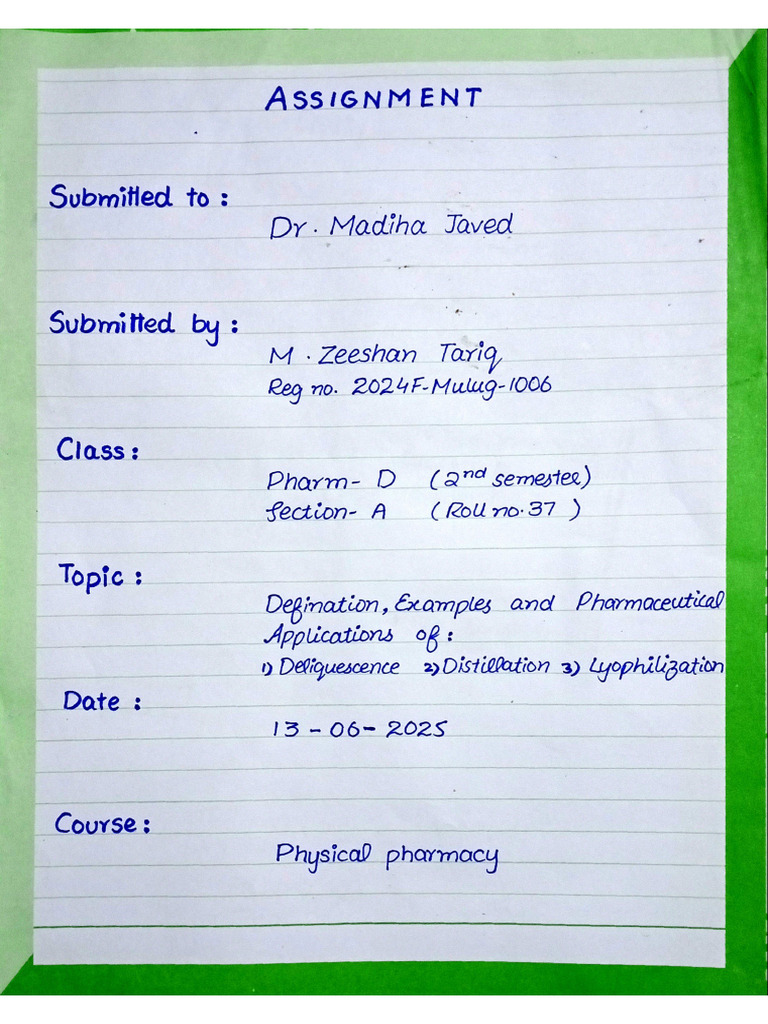 ASSIGNMENT
Submitted to :
Dr. Madiha Javed
Submitted by :
M. Zeeshan Tariq
Reg no. 2024F-Mulug-1006
Class :
Pharm- D (2nd semester)
Section- A (Roll no. 37 )
Topic :
Defination, Examples and Pharmaceutical
Applications of :
1) Deliquescence 2) Distillation 3) Lyophilization
Date :
13 - 06 - 2025
Course :
Physical pharmacy